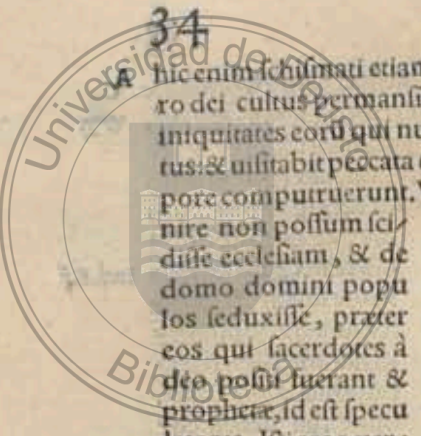 34
A hic enim schismati etian
ro dei cultus permansi
iniquitates eorū qui nu
tus:& uisitabit peccata
pore computruerunt.
nire non possum sci/
disse ecclesiam, & de
domo domini popu
los seduxisse, præter
eos qui sacerdotes à
deo positi fuerant &
prophetæ, id est specu
Universidad de Deusto
Biblioteca